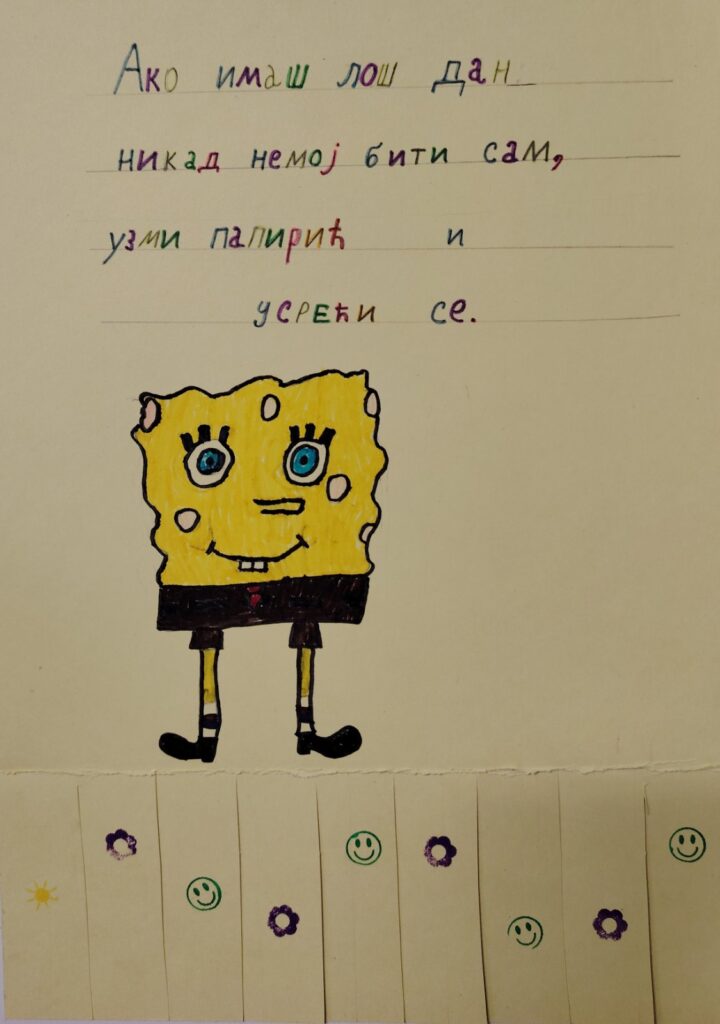 Ако имаш лош дан
никад немој бити сам,
узми папирић и
усрећи се.